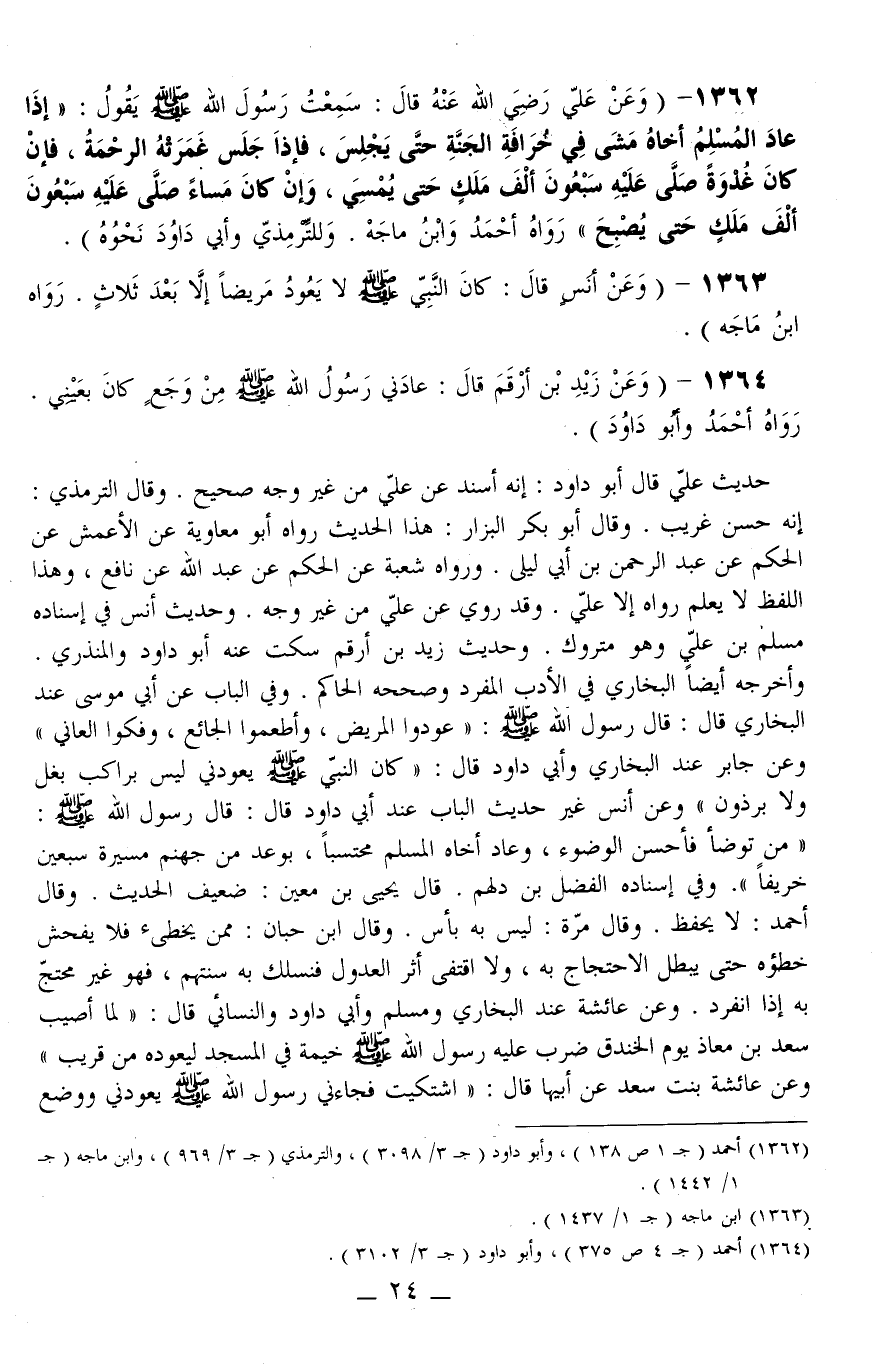 ١٣٦٢- ( وَعَنْ عَليّ رَضِيَ الله عَنْهُ قالَ : سَمِعْتُ رَسُولَ الله ﷺ يَقُولُ : « إذَا
عادَ المُسْلِمُ أخاهُ مَشَى فِي خُرَافَةِ الجَنَّةِ حتَّى يَجْلِسَ ، فإذاَ جَلَس غَمَرَتْهُ الرحْمَةُ ، فإنْ
كانَ غُدْوَةً صَلَّى عَلَيْهِ سَبْعُونَ ألْفَ مَلَكٍ حَتى يُمْسِي ، وَإنْ كانَ مَساءً صَلَّى عَلَيْهِ سَبْعُونَ
ألْفَ مَلَكٍ حَتى يُصْبِحَ » رَوَاهُ أحْمَدُ وَابْنُ ماجَهْ . وَللتِّرْمِذيّ وأبي دَاوُدَ نَحْوُهُ ) .
١٣٦٣ - ( وَعَنْ أنَسٍ قالَ : كانَ النَّبِيّ ﷺ لا يَعُودُ مَريضاً إلَّا بَعْدَ ثَلاثٍ . رَوَاه
ابنُ مَاجَه ) .
١٣٦٤ - ( وَعَنْ زَيْدِ بْن أرْقَمَ قالَ : عادَني رَسُولُ الله ﷺ مِنْ وَجَعٍ كانَ بعَيْنِي .
رَوَاهُ أحْمَدُ وأبُو دَاوُدَ ) .
حديث عليّ قال أبو داود : إنه أسند عن عليّ من غير وجه صحيح . وقال الترمذي :
إنه حسن غريب . وقال أبو بكر البزار : هذا الحديث رواه أبو معاوية عن الأعمش عن
الحكم عن عبد الرحمن بن أبي ليلى . ورواه شعبة عن الحكم عن عبد الله عن نافع ، وهذا
اللفظ لا يعلم رواه إلا عليّ . وقد روي عن عليّ من غير وجه . وحديث أنس في إسناده
مسلم بن عليّ وهو متروك . وحديث زيد بن أرقم سكت عنه أبو داود والمنذري .
وأخرجه أيضاً البخاري في الأدب المفرد وصححه الحاكم . وفي الباب عن أبي موسى عند
البخاري قال : قال رسول الله ﷺ : « عودوا المريض ، وأطعموا الجائع ، وفكوا العاني »
وعن جابر عند البخاري وأبي داود قال : « كان النبيّ ﷺ يعودني ليس براكب بغل
ولا برذون » وعن أنس غير حديث الباب عند أبي داود قال : قال رسول الله ﷺ :
« من توضأ فأحسن الوضوء ، وعاد أخاه المسلم محتسباً ، بوعد من جهنم مسيرة سبعين
خريفاً ». وفي إسناده الفضل بن دلهم . قال يحيى بن معين : ضعيف الحديث . وقال
أحمد : لا يحفظ . وقال مرّة : ليس به بأس . وقال ابن حبان : ممن يخطىء فلا يفحش
خطؤه حتى يبطل الاحتجاج به ، ولا اقتفى أثر العدول فنسلك به سنتهم ، فهو غير محتجّ
به إذا انفرد . وعن عائشة عند البخاري ومسلم وأبي داود والنسائي قال : « لما أصيب
سعد بن معاذ يوم الخندق ضرب عليه رسول الله ﷺ خيمة في المسجد ليعوده من قريب »
وعن عائشة بنت سعد عن أبيها قال : « اشتكيت فجاءني رسول الله ﷺ يعودني ووضع
(١٣٦٢) أحمد ( جـ ١ ص ١٣٨ ) ، وأبو داود ( جـ ٣/ ٣٠٩٨ ) ، والترمذي ( جـ ٣/ ٩٦٩ ) ، وابن ماجه ( جـ
١/ ١٤٤٢ ) .
(١٣٦٣) ابن ماجه ( جـ ١/ ١٤٣٧ ) .
(١٣٦٤) أحمد ( جـ ٤ ص ٣٧٥ ) ، وأبو داود ( جـ ٣/ ٣١٠٢ ) .
_ ٢٤ _